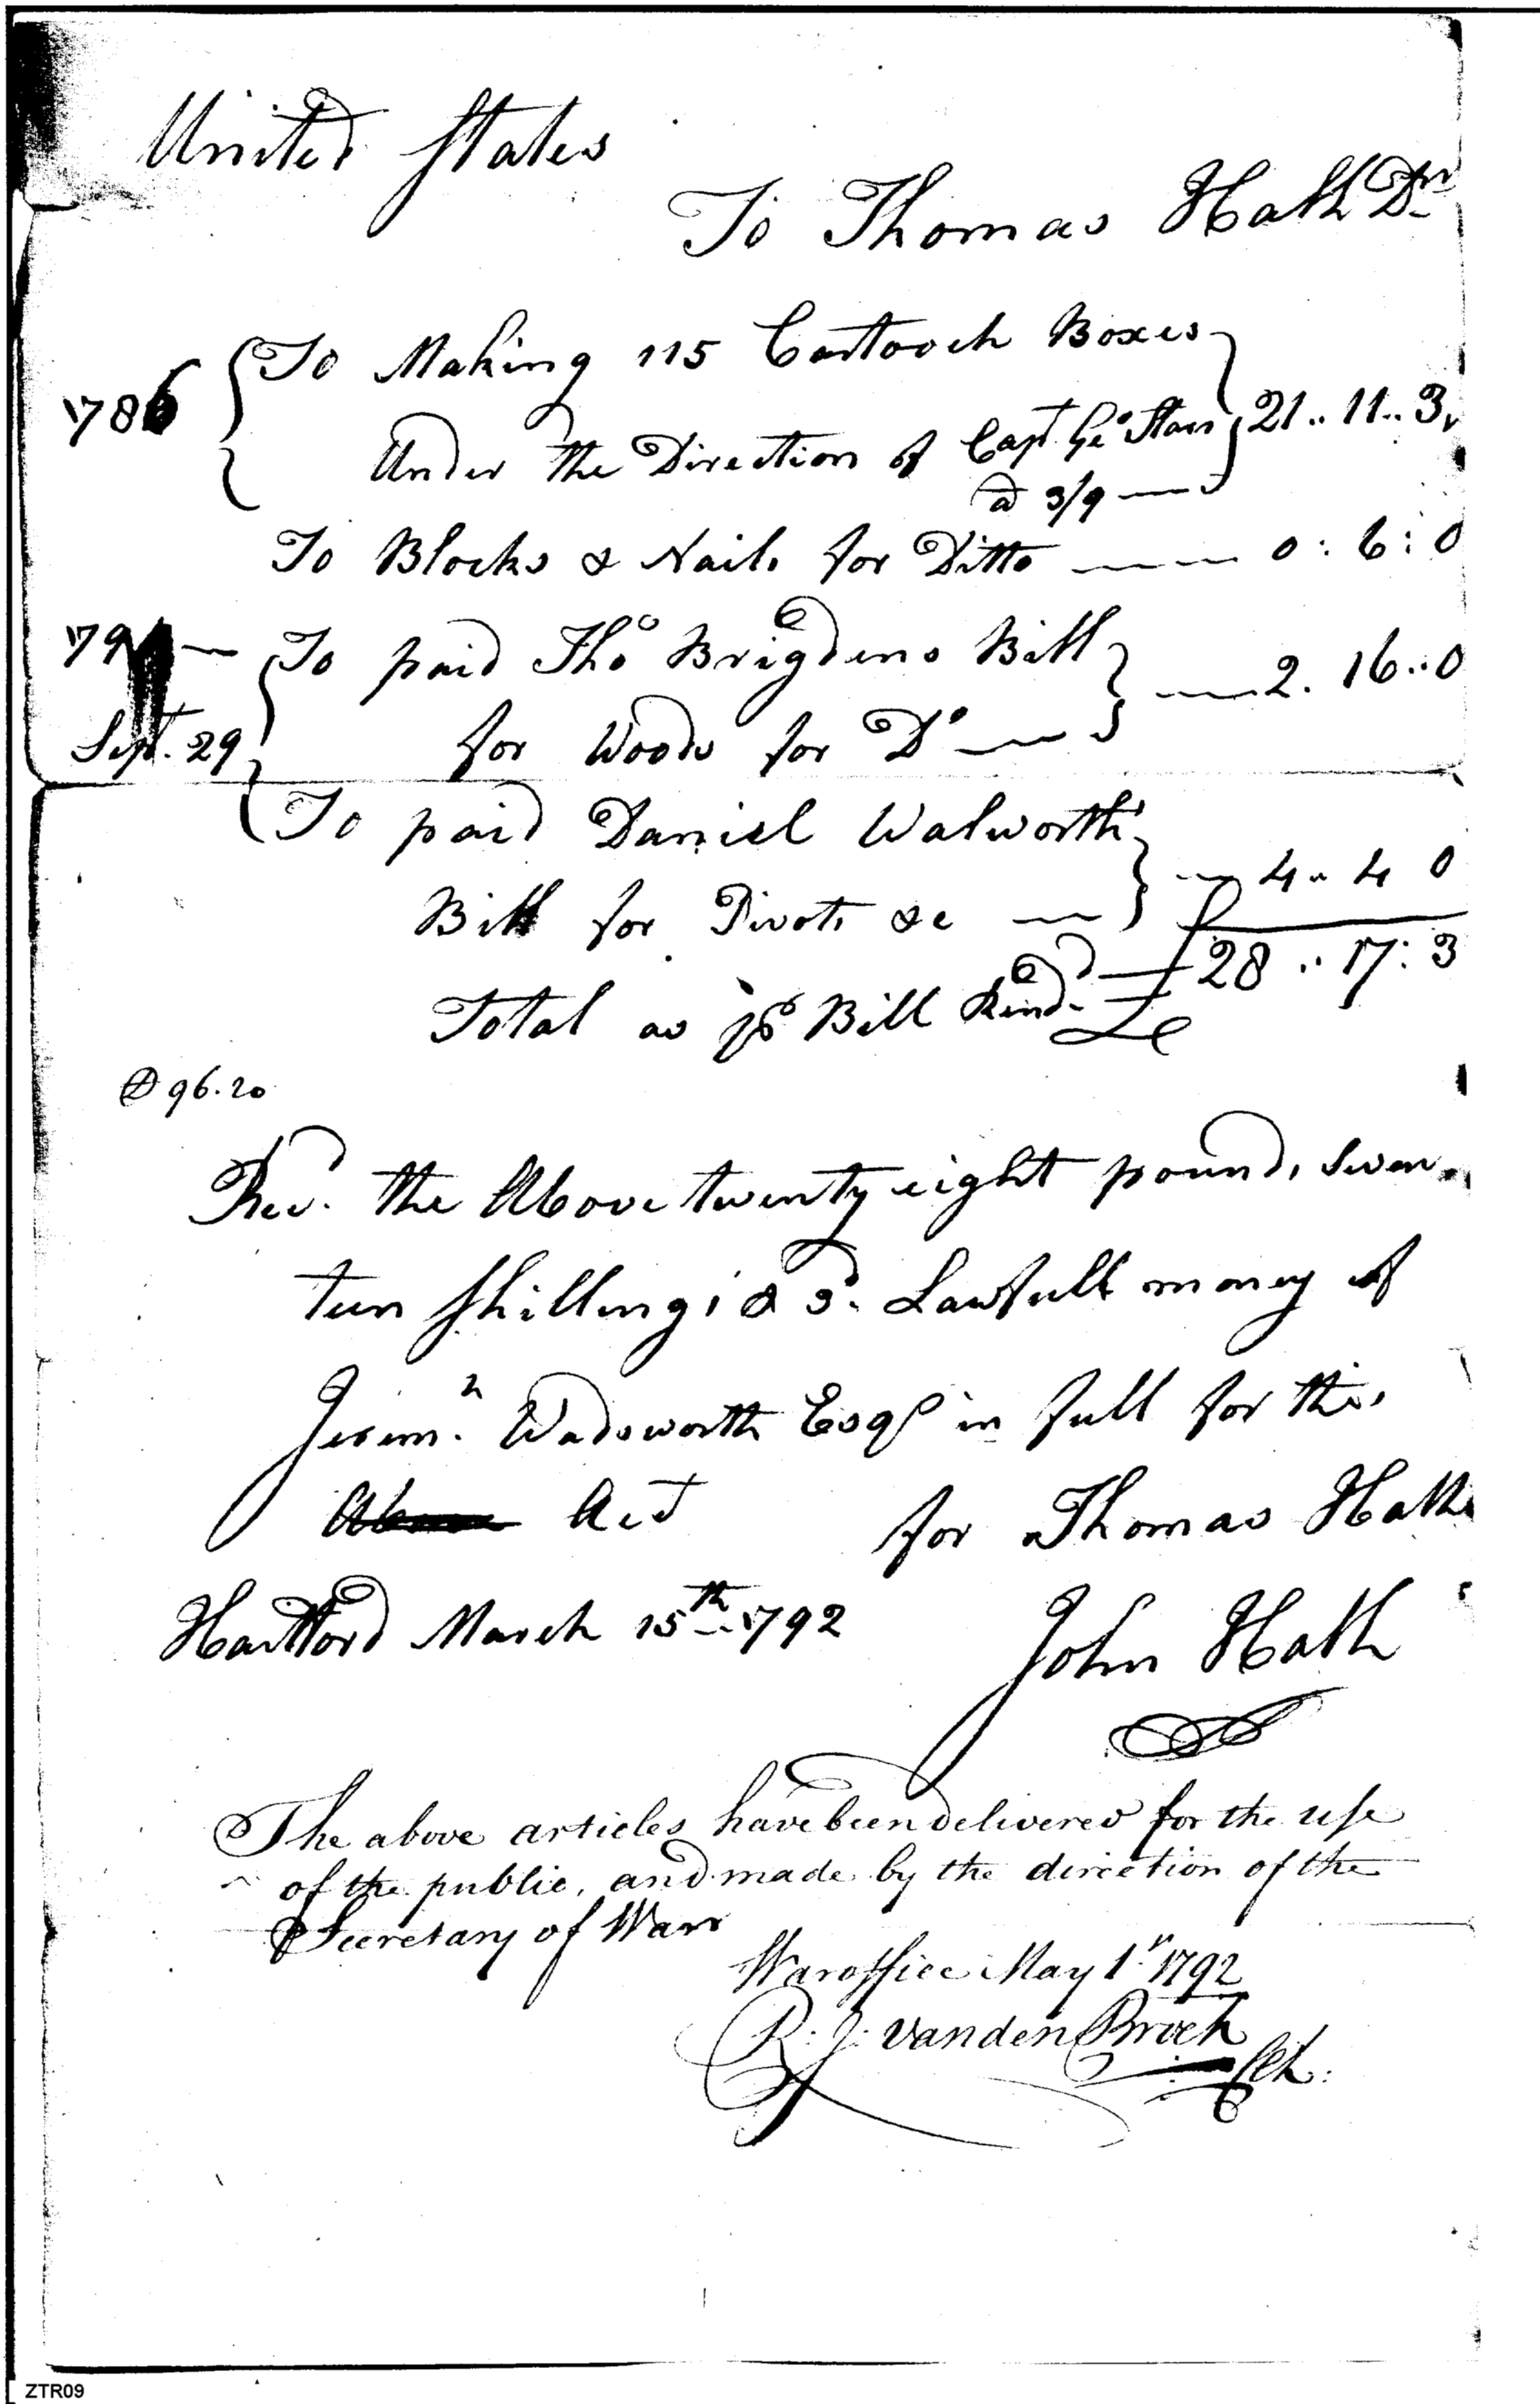 United States
To Thomas Hall Dr
1786 To Making 115 Cartooch Boxes
Under the Direction of Capt. Geo Starr 21..11..3
@ 3/9
To Blocks & Nails for Ditto 0:6:0
179
Sept. 29
To paid Tho Brigdens Bill 2.16..0
for Woods for Do
To paid Daniel Walworths
Bill for Pivots &c 4..4 0
Total as pr Bill Rend £ 28..17:3
D 96.20
Recd. the Above twenty eight pounds seven
teen shillings & 3d. Lawfull money of
Jerem.h Wadsworth Esqr in full for this
Above Act
for Thomas Hall
Hartford March 15th 1792
John Hall
The above articles have been delivered for the use
of the public, and made by the direction of the
Secretary of Warr
War office May 1st 1792
R: J: vanden Broek
Clk:
ZTR09